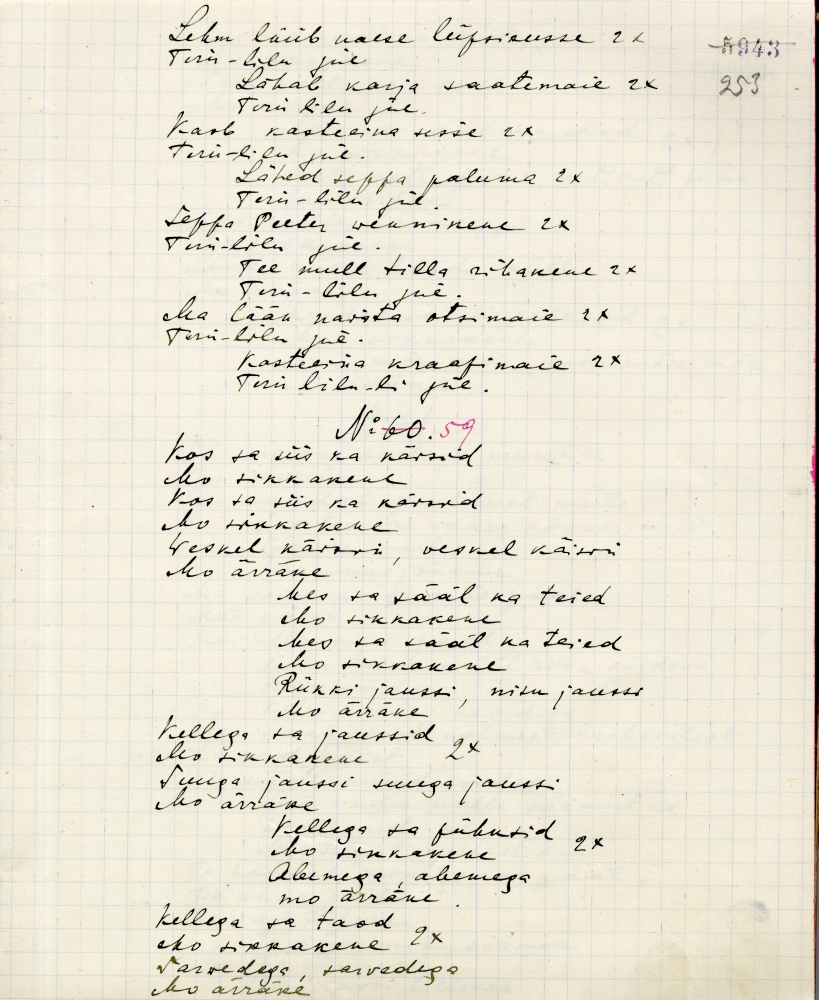 Lehm lüüb naese lüpsikusse 2x
5943
Terii-lilu jüe
253
Lähab karja saatemaie 2x
Terii lilu jüe.
Kaob kasteeina sisse 2x
Terii-lilu jüe.
Lähed seppa paluma 2x
Terii-lilu jüe.
Seppa Peeter wennikene 2x
Terii-lilu jüe.
Tee mull silla rihakene 2x
Terii-lilu jüe.
Ma lään naista otsimaie 2x
Terii-lilu jüe.
Kasteeina kraapimaie 2x
Terii lilu-li jüe.
No 60. 59
Kos sa siis ka käisid
Mo sikkakene
Kos sa siis ka käisid
Mo sikkakene
Weskel käisin, veskel käisin
Mo ärräke
Mes sa sääl ka teied
Mo sikkakene
Mes sa sääl ka teied
Mo sikkakene
Rükki jaussi, nisu jaussi
Mo ärräke
Kellega sa jaussid
Mo sikkakene 2x
Suuga jaussi suuga jaussi
Mo ärräke
Kellega sa pühusid
Mo sikkakene 2x
Abemega, abemega
mo ärräke.
Kellega sa taod
Mo sikkakene 2x
Sarvedega, sarvedega
Mo ärräke